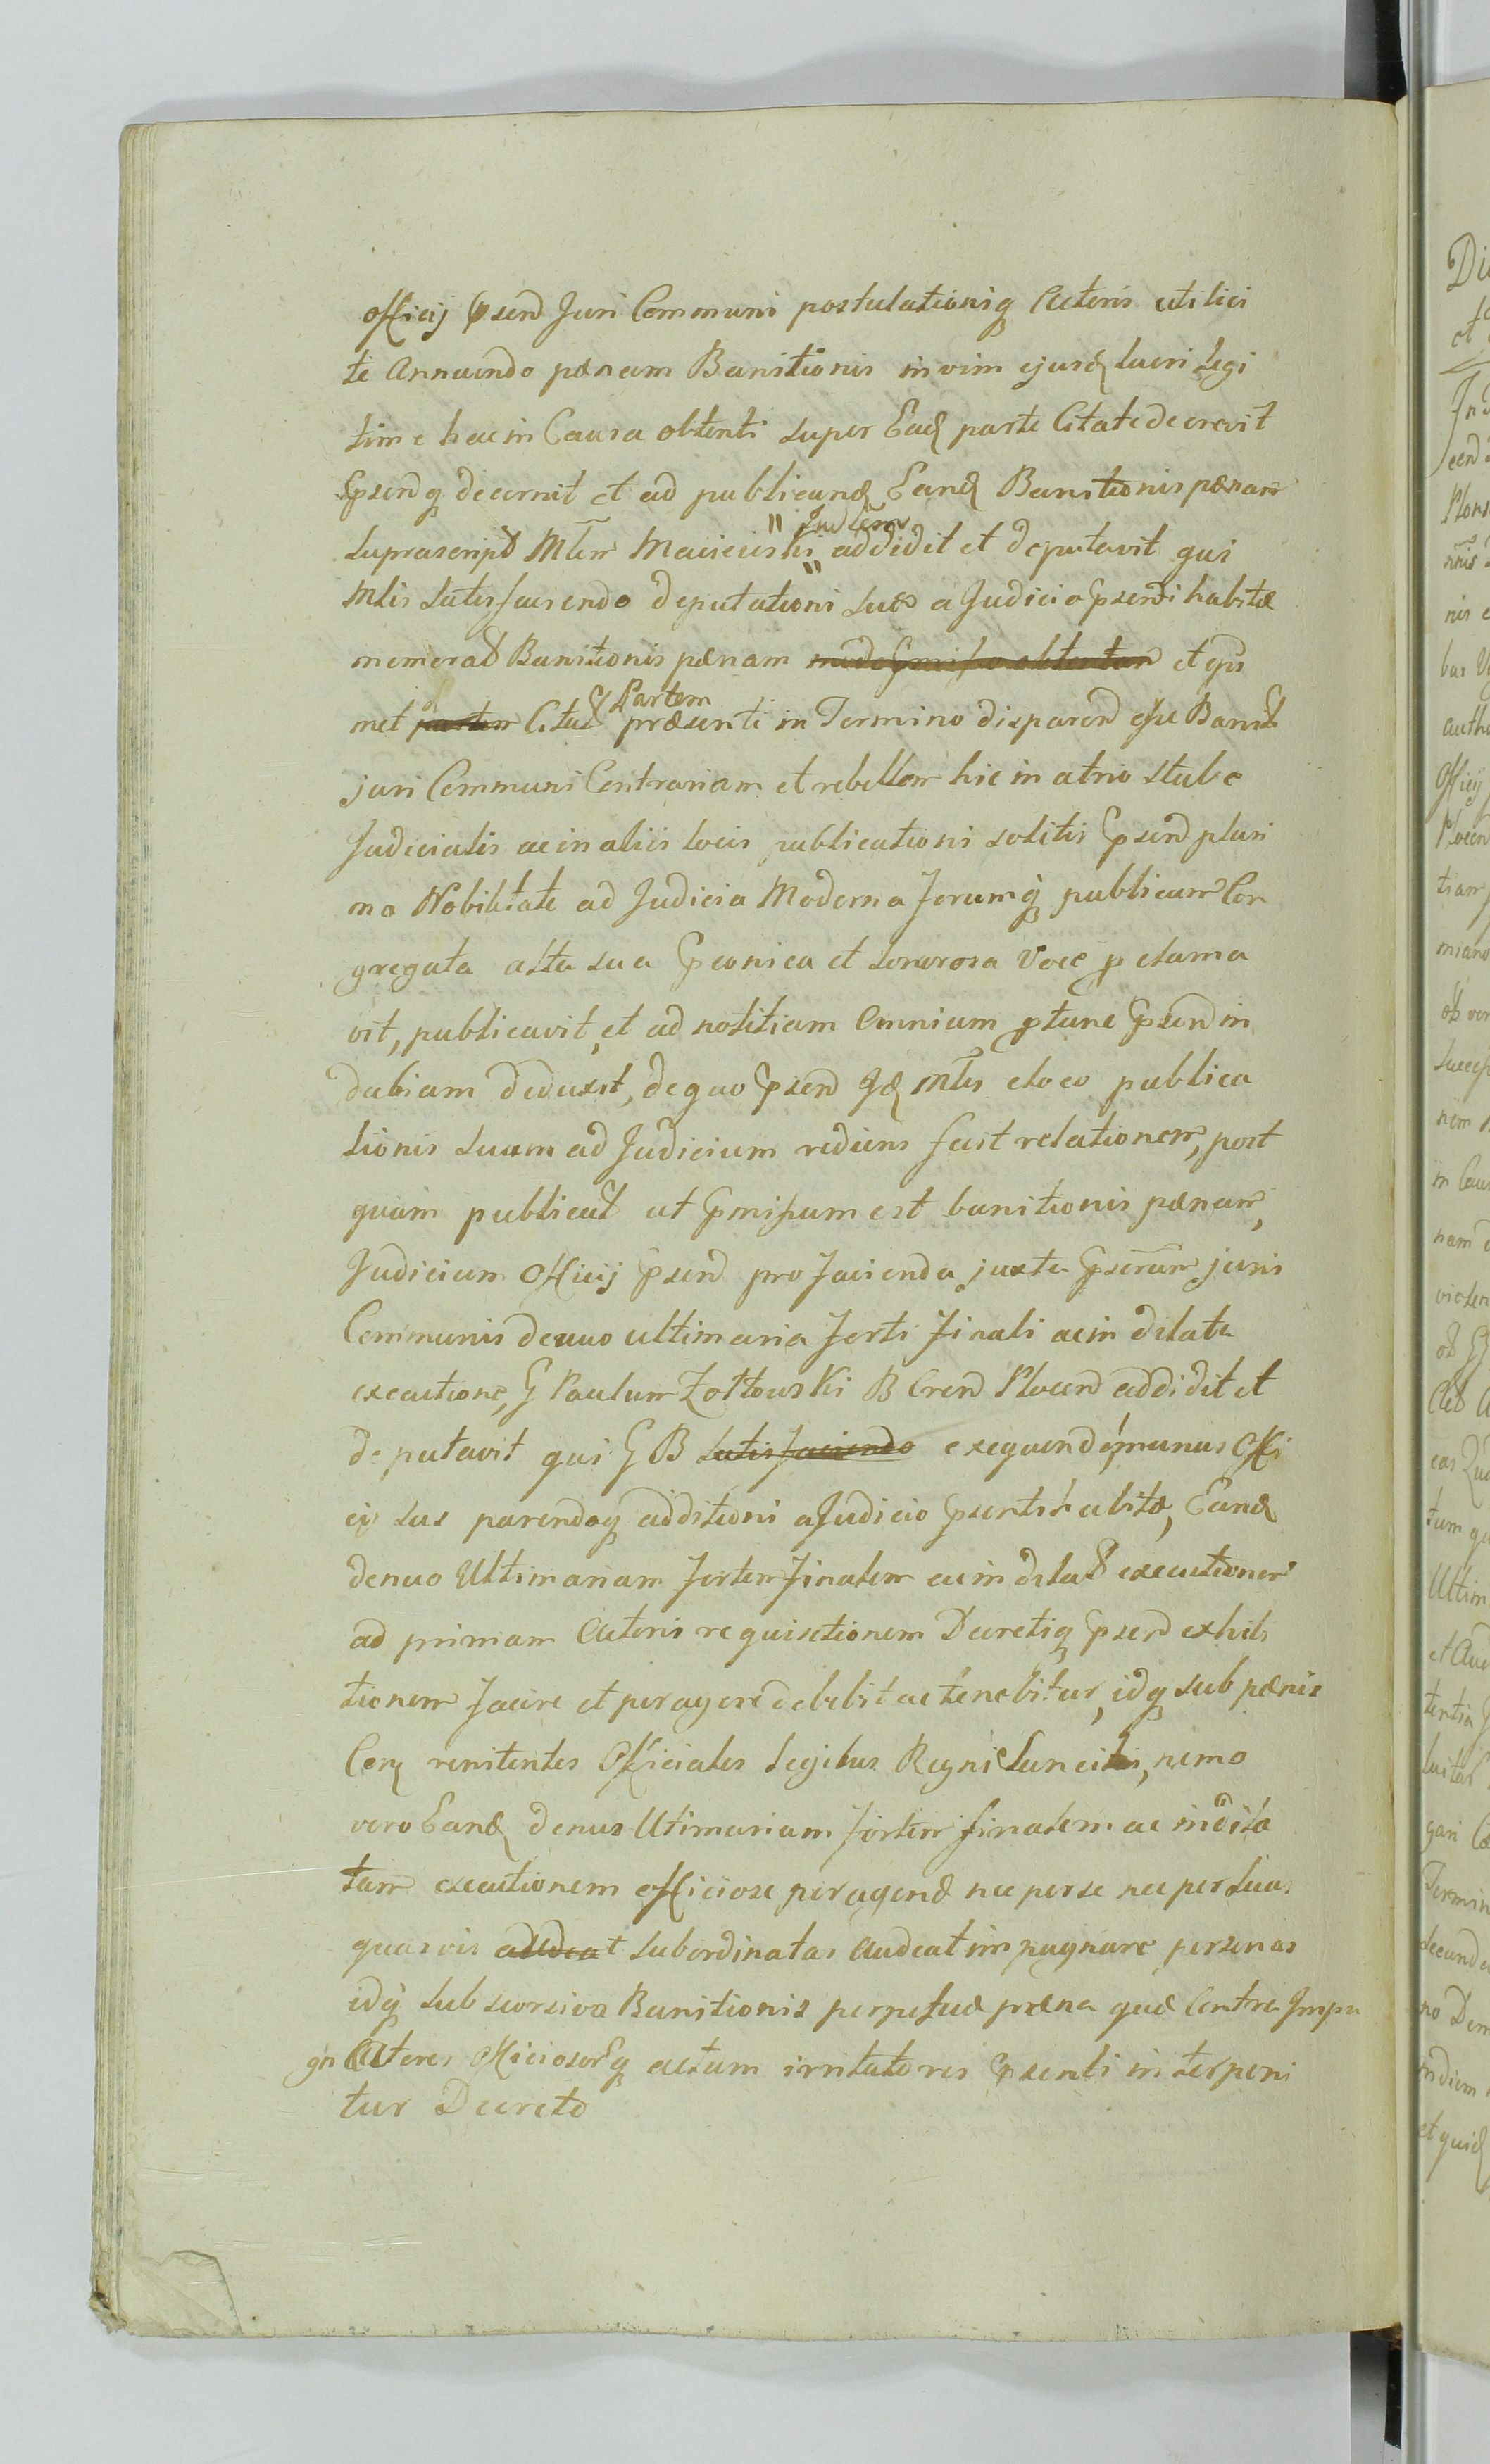 officij pserd Juri Communi postulationiq Actoris utilici
te Annuendo pænam Banitionis in vim ejusd lucri legi
time hac in Causa obtenti super Ead parte Citate decrevit
pserdq decernit et ad publicand Eand Banitionis pænam
suprascript Mlem Macieiski "Judlem" addidit et deputavit qui
Mlis satisfaciendo deputationi suæ a Judicio pserdi habitæ
memorat Banitionis pænam et eps
met Citat Partem præsenti in Termino disparend esse Banit
juri Communi Contrariam et rebellem hic in atrio stubæ
Judicialis ac in aliis locis publicationi solitis pserd pluri
ma Nobilitate ad Judicia Moderna forumq publicum Con
gregata alta sua pconica et sonorosa Voce pclama
vit, publicavit, et ad notitiam Omnium ptunc pserd in
dubiam deduxit, de quo pserd Id Mlis eloco publica
tionis suam ad Judicium rediens fecit relationem, post
quam publicat ut pmissum est banitionis pænam,
Judicium Officij pserd pro facienda juxta pscrum juris
Communis denuo ultimaria forti finali ac in dilata
executione, G Paulum Zołtowski B Cren Plocen addidit et
deputavit qui G B satisfaciendo exequendo munus Offi
cij sui parendoq additioni a Judicio psentis habitæ, Eand
denuo Ultimariam fortem finalem ac in dilat executionem
ad primam Actoris requisitionem Decretiq pserd exhibi
tionem facere et peragere debebit ac tenebitur, idq sub pænis
Con renitentes Officiales legibus Regni Sancitis, nemo
vero Eand denuo Utimariam fortem finalem ac indila
tam executionem officiose peragend nec per se nec per suas
quasvis audeat subordinatas audeat impugnare personas
idq sub seorsiva Banitionis perpetuæ pæna quæ Contra Impu
gn Actores officiosorq actum irritatores psenti interponi
tur Decreto